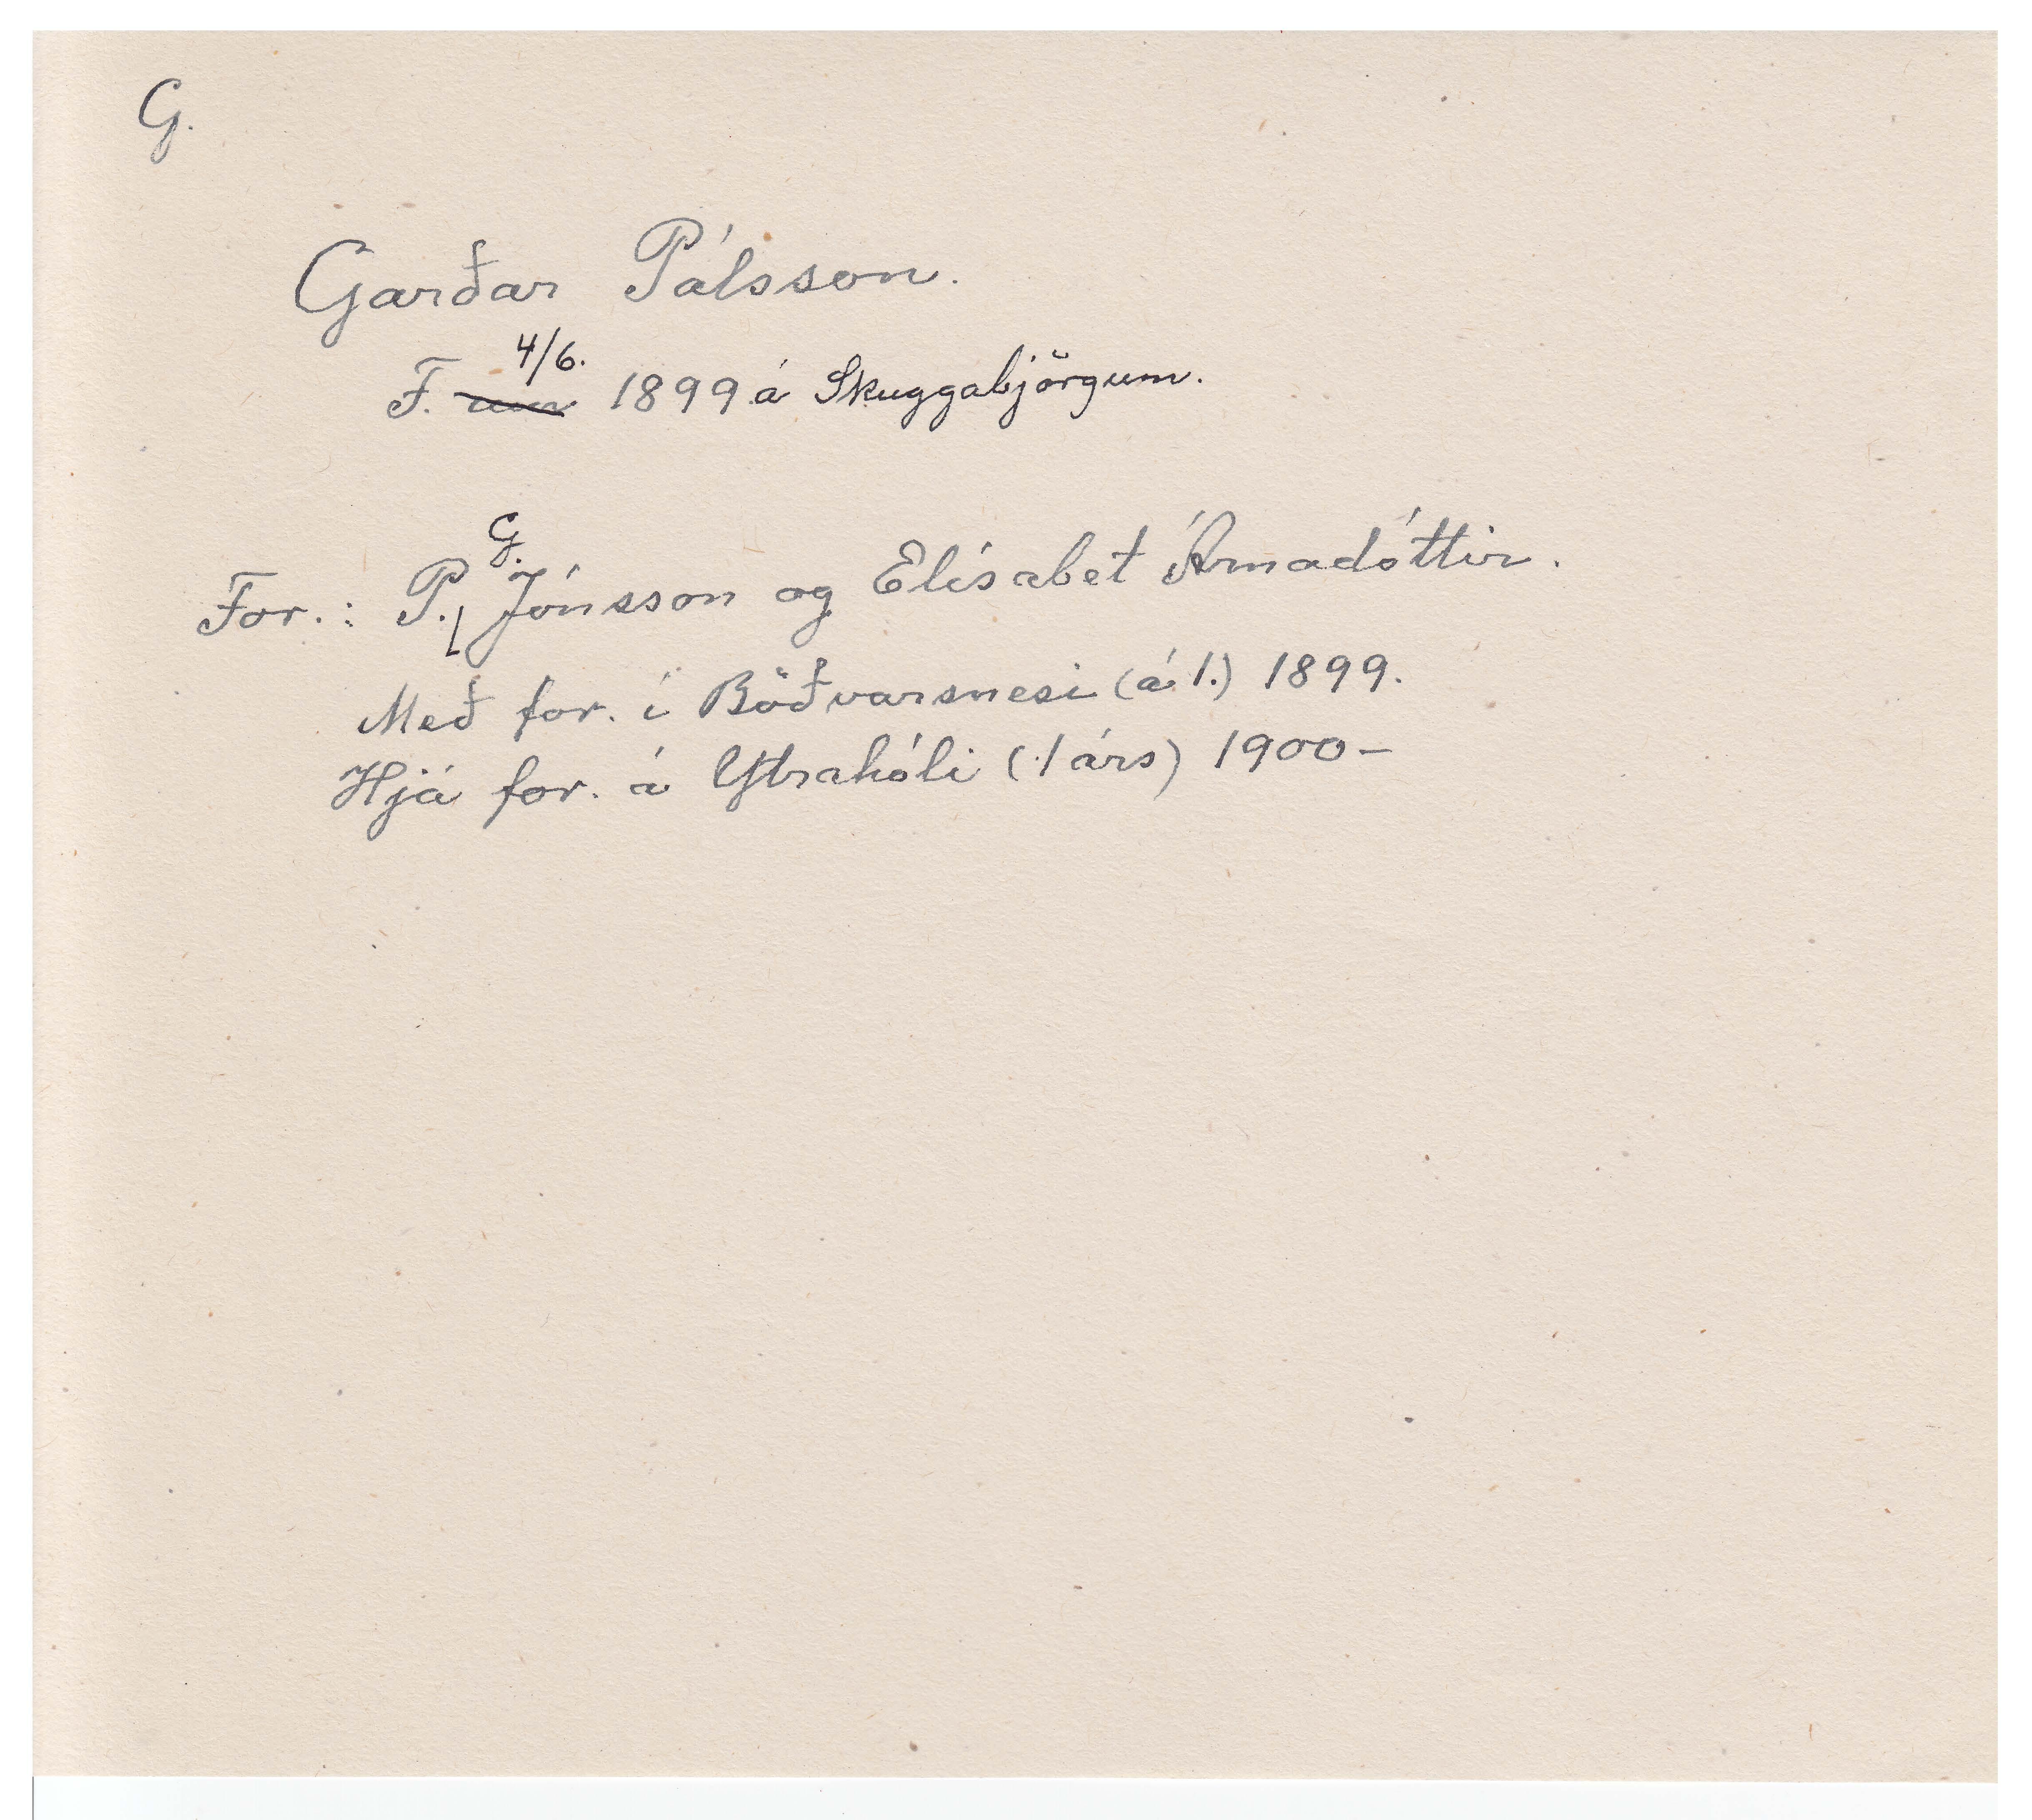 G.
Garðar Pálsson.
F. um 4/6. 1899 á Skuggabjörgum.
For.: P. G. Jónsson og Elísabet Árnadóttir.
Með for. í Böðvarsnesi (á 1.) 1899.
Hjá for. á Ytrahóli (1 árs) 1900-